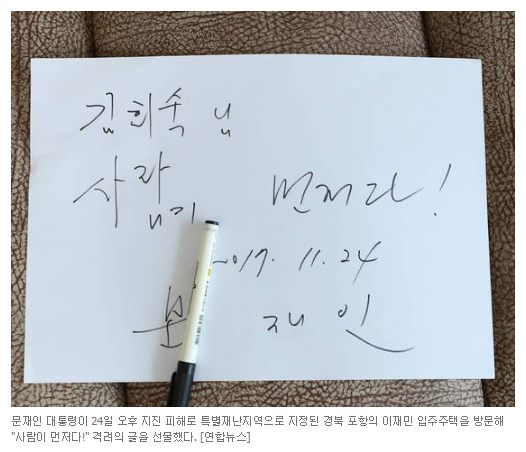 김희숙 님
사람이 먼저다!
2017. 11. 24
문 재 인
문재인 대통령이 24일 오후 지진 피해로 특별재난지역으로 지정된 경북 포항의 이재민 입주주택을 방문해
"사람이 먼저다!" 격려의 글을 선물했다. [연합뉴스]